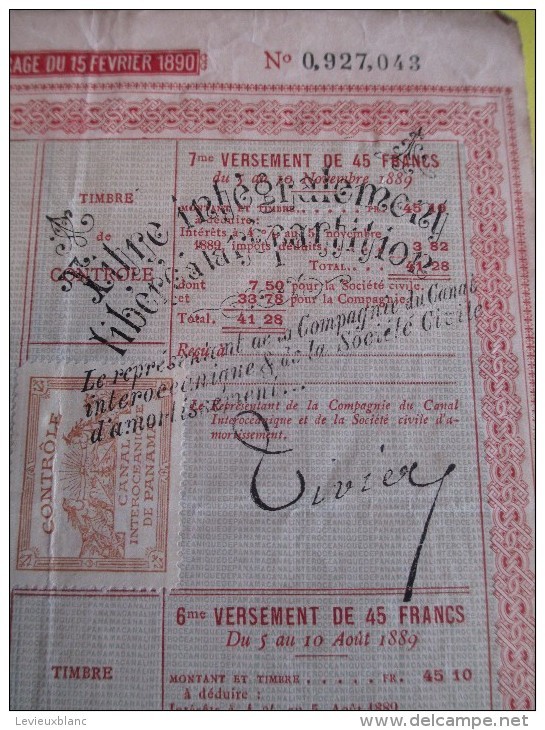 RAGE DU 15 FÉVRIER 1890
No 0,927,043
TIMBRE
de
CONTRÔLE
7me VERSEMENT DE 45 FRANCS
du 5 au 10 Novembre 1889
MONTANT ET TIMBRE . . . FR. 45 10
à déduire:
Intérêts à 4 % au 5 novembre
1889, impôts déduits, 3 82
TOTAL... 41 28
dont 7,50 pour la Société civile.
et 33,78 pour la Compagnie
Total. 41 28
Reçu
Le Représentant de la Compagnie du Canal
Interocéanique et de la Société civile d'a-
mortissement.
Titre intégralement
libéré à la répartition
Le représentant de la Compagnie du Canal
interocéanique & de la Société Civile
d'amortissement...
CONTRÔLE
CANAL
INTEROCEANIQUE
DE PANAMA
6me VERSEMENT DE 45 FRANCS
Du 5 au 10 Août 1889
TIMBRE
MONTANT ET TIMBRE . . . . . FR. 45 10
à déduire :
Intérêts à 4 % au 5 Août 1889
Levieuxblanc
www.delcampe.net